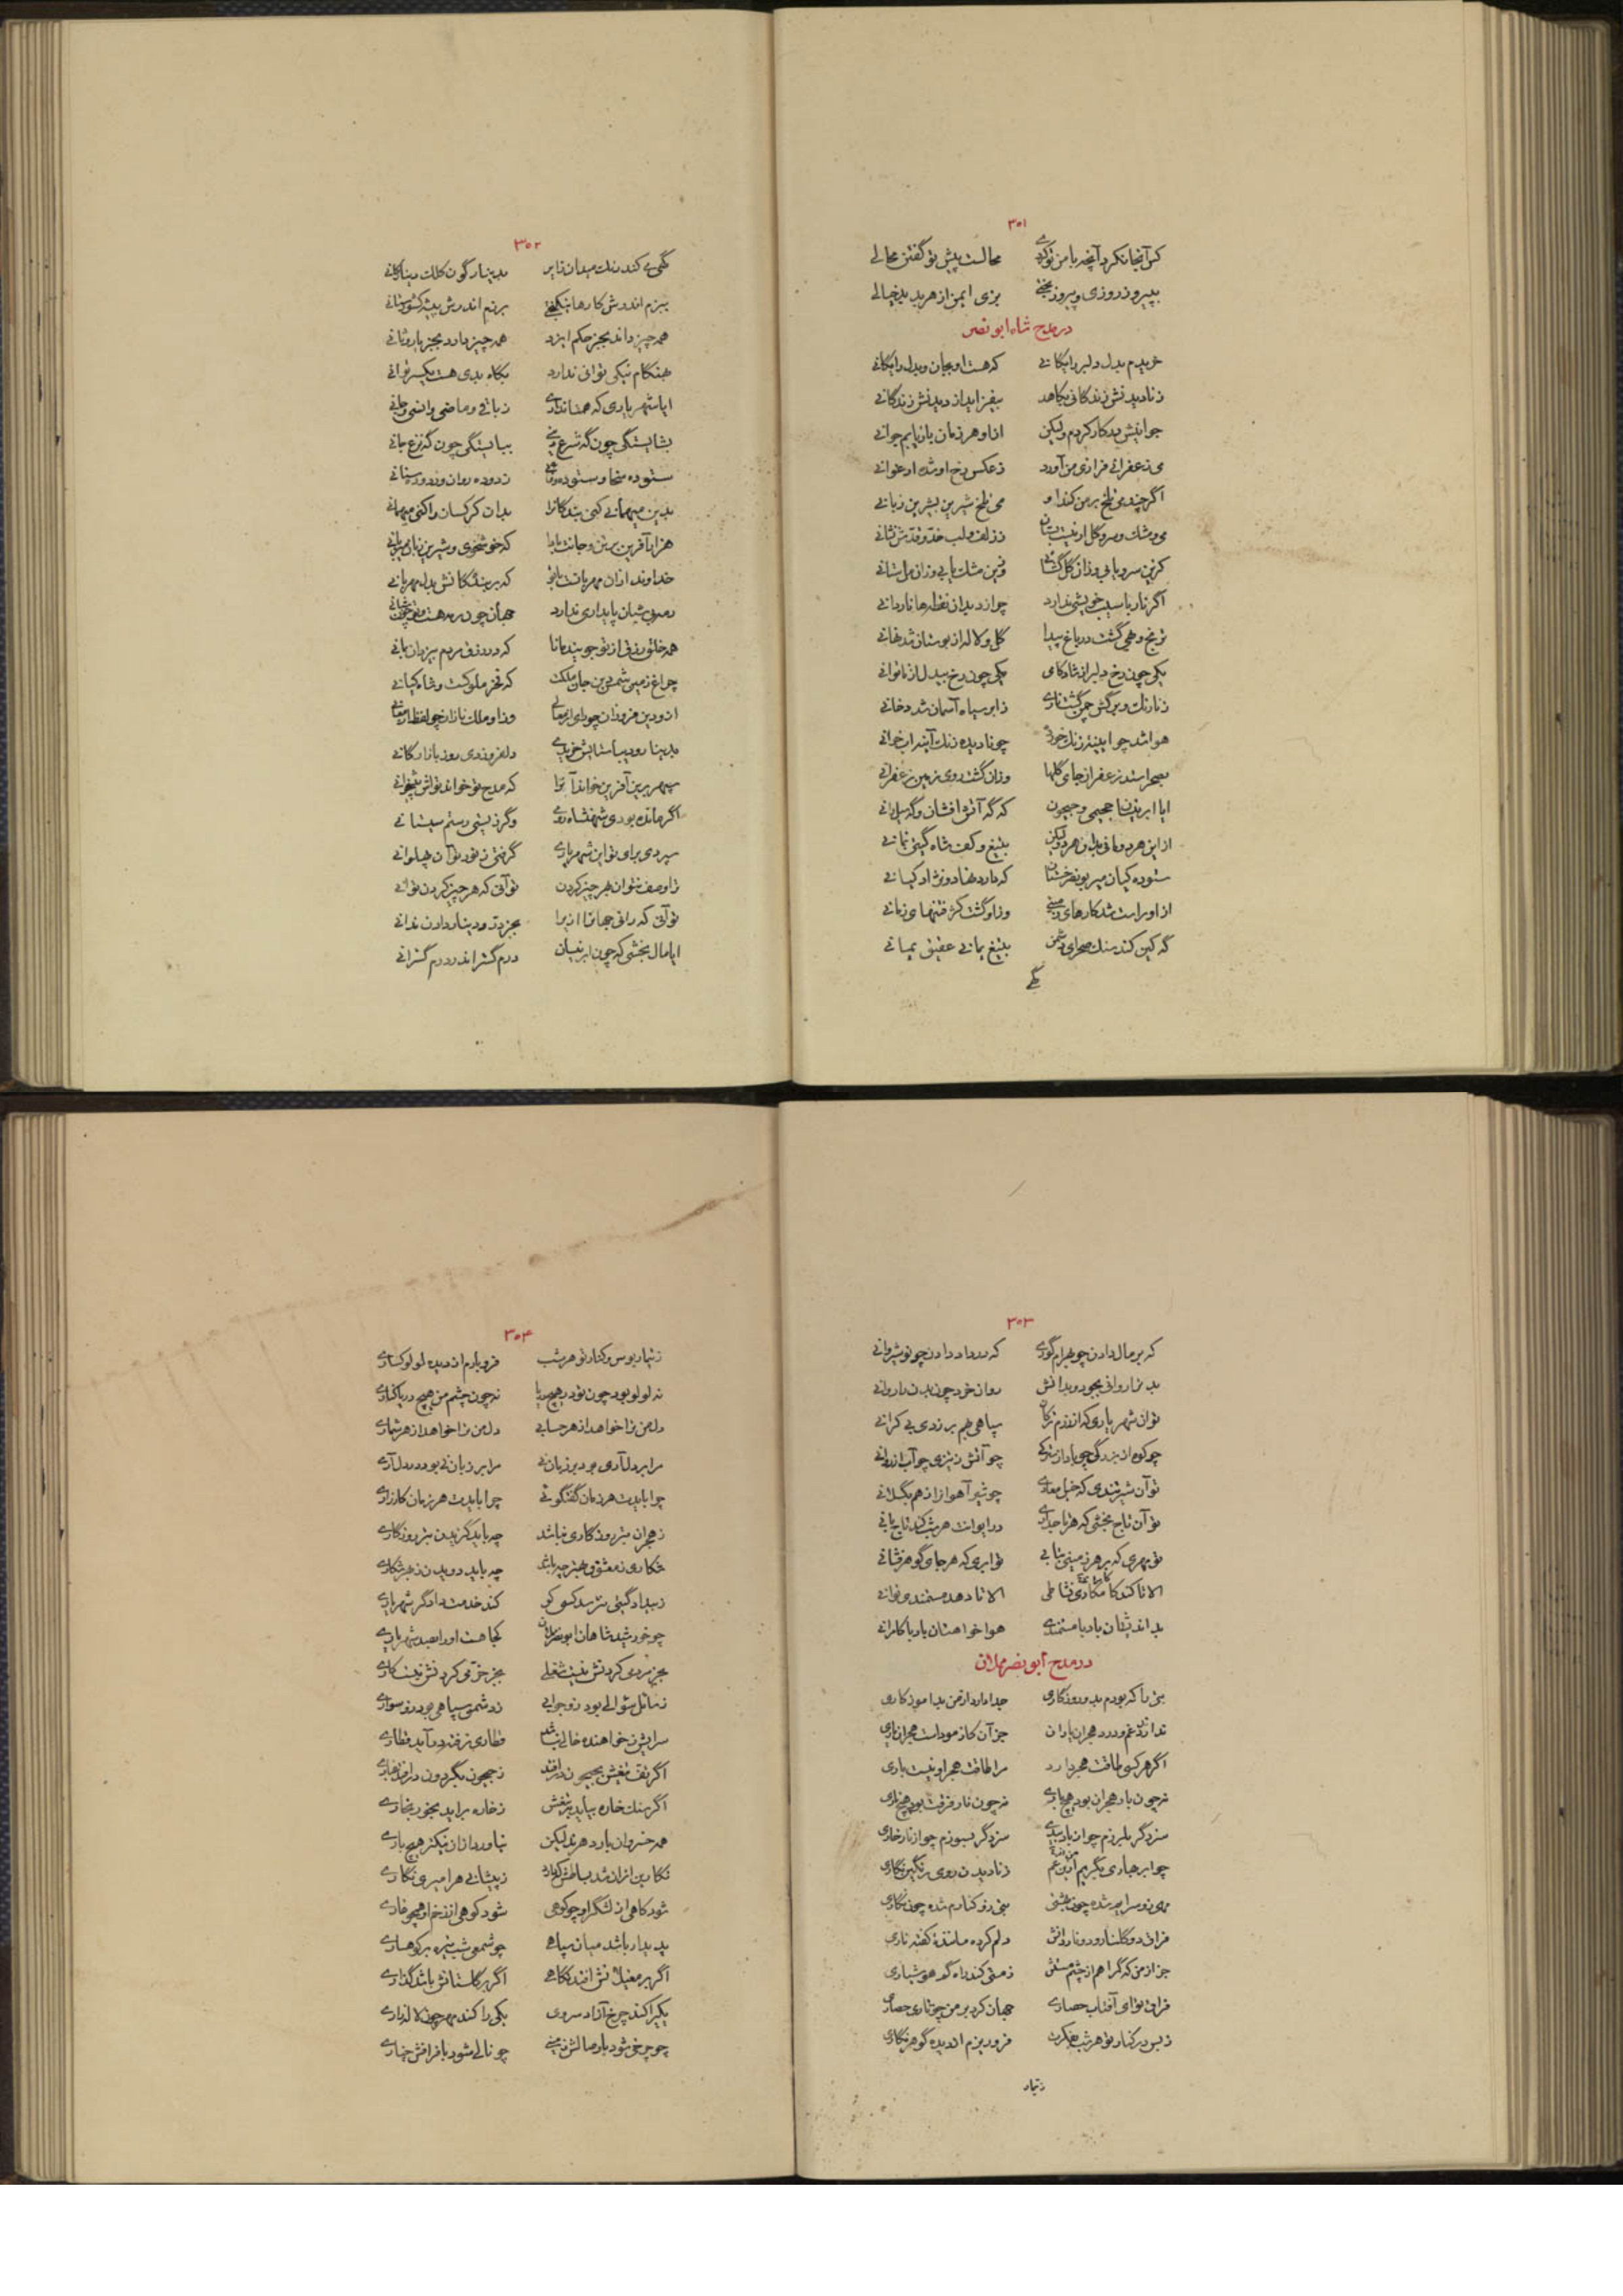 ۳۰۱
کس آنجا نکرد آنچه با من تو کردی محالست پیش تو گفتن محالی
بپیروز روزی و پیروز بختی بزی ایمن از هر بد بدخیالی
در مدح شاه ابو نصر
خریدم بدل دلبر رایگانی که هست او بجان و بدل رایگانی
ز نادیدنش زندگانی بکاهد بیفزاید از دیدنش زندگانی
جوانیش بد کار کردم ولیکن ازو هر زمان باز یابم جوانی
می زعفرانی فرازی من آورد ز عکس رخ او شده ارغوانی
اگر چند می تلخ بر من کند او می تلخ شیرین بشیرین زبانی
می و مشک و سرو و گل ار نیست زلف و لب خد و قدش نشانی
کزین سرو یابی وزان گل وزین مشک یابی وزان مل ستانی
اگر نار با سیب خویشی ندارد چو از دیدن نقطه‌ها ناردانی
ترنج و بهی گشت در باغ پیدا گل و لاله از بوستان شد نهانی
یکی چون رخ دلبر از شادکامی یکی چون رخ بیدل از ناتوانی
ز ابر سیاه آسمان شد دخانی
هوا شد چو آیینه زنگ خورده چو نادیده زنگ آیینه آب خوانی
بصحرا شد زعفران جای گلها وزان گشت روی زمین زعفرانی
ایا ابر جیحون که گه آتش افشان و گه سیل رانی
ازین هر دو مانی بدان هر دو لیکن بتیغ و کف شاه گیتی نمانی
ستوده کیان میر بونصر که دارد نهاد و نژاد کیانی
ازو راست شد کارهای زمینی وزو گشت کژ فتنهای زمانی
گه کین کند سنگ صحرای دشمن بتیغ یمانی عقیق یمانی
گهی
۳۰۲
گهی کند رنگ میدان بدینار گون کلک دینارگانی
ببزم اندرش کارها برزم اندرش پیشه کشورستانی
همه چیز داند بجز حکم ایزد همه چیز دارد بجز یار و ثانی
بهنگام نیکی توانی ندارد بگاه بدی هست یکسر توانی
ایا شهریاری که همتا نداری
بشایستگی چون گه شرع دینی ببایستگی چون گه نزع جانی
بدین میهمانی کنی بندگانرا بدان کرکسان را کنی میهمانی
هزار آفرین بر تن و جانت بادا که خوشخوی و شیرین زبان
خداوند ازان مهربانست که بر بندگانش بدل مهربانی
رمه بی شبان پایداری ندارد جهان چون رمه هست و تو چون شبانی
همه خلق رزق از تو جویند مانا که در رزق مردم بیزدان ضمانی
چراغ زمین شمس دین جان ملکت که فخر ملوکست و شاه کیانی
بدینار و دیبا ستایش خریدی دلفروزی روز بازارگانی
سپهر برین آفرین خواند آنرا که مدح تو خواند تواش پیشخوانی
اگر مانده بودی شهنشاه وگر زیستی رستم سیستانی
سپردی برای تو این شهریاری گرفتی ز تو آن پهلوانی
ترا وصف نتوان بهر چیز کردن تو آنی که هر چیز کردن توانی
تو آنی که رانی جهانرا ازیرا بجز زر و دینار دادن ندانی
ایا مال بخشی که چون ابر نیسان درم گستراند درم گسترانی
۳۰۳
که بر مال دادن چو بهرام گوری که در داد دادن چو نوشروانی
بدن را روانی بجود و بدانش روان خرد چون بدن را روانی
تو آن شهریاری که اندر سپاهی بهم بر زدی بی کرانی
چو کوه از بزرگی چو باد از چو آتش ز تیزی چو آب از روانی
تو آن شیر تندی که خیل معادی چو شیر آهو از هم بگسلانی
تو آن تاج بخشی که هر تاجداری در ایوانت هر شب کند تاج بانی
تو مهری که بر هر زمینی بتابی تو ابری که هر جای گوهر فشانی
الا تا کند کامکاری نشاطی الا تا دهد مستمندی نوانی
بد اندیشان باد با مستمندی هوا خواهشان باد با کامرانی
در مدح ابو نصر مملان
بتی را که بودم بدو روزگاری جدا دارد از من بد آموزگاری
نداند غم و درد هجران یاران جز آن کازمودست هجران یاری
اگر هر کسی طاقت هجر دارد مرا طاقت هجر او نیست باری
نه چون باد هجران بود هیچ بادی نه چون نار فرقت بود هیچ ناری
سزد گر بلرزم چو از باد بیدی سزد گر بسوزم چو از نار خاری
چو ابر بهاری بگریم ازین غم ز نادیدن روی رنگین نگاری
بدو سرایم شده چون بهشتی بتی زو کنارم شده چون نگاری
فراق دو گلنار و دو ناردانش دلم کرده مانندهٔ کفته ناری
جز از من که گمراهم از چشم مستش ز مستی کند راه گم هوشیاری
فراق تو ای آفتاب حصاری جهان کرد بر من چو تاری حصاری
ز بس در کنار تو هر شب فرو ریزم از دیده گوهر نگاری
ز تیمار
۳۰۴
ز تیمار بوس و کنار تو هر شب فرو بارم از دیده لولو کناری
نه لولو بود چون تو در هیچ دریا نه چون چشم من هیچ دریا کناری
دل من ترا خواهد از هر حسابی دل من ترا خواهد از هر شماری
مرا بر دل آری چو بر زبان نی مرا بر زبان نی بود در دل آری
چرا بایدت هر زمان گفتگوئی چرا بایدت هر زمان کارزاری
ز هجران بتر روزگاری نباشد چه باید گزیدن بتر روزگاری
شکاری ز معشوق بهتر چه باشد چه باید دویدن ز بهر شکاری
ز بیداد گیتی نترسد کسی کو کند خدمت دادگر شهریاری
چو خورشید شاهان ابو نصر کجا هست او را بصد شهریاری
بجز مردمی کردنش نیست شغلی بجز خرمی کردنش نیست کاری
ز سائل سوالی بود زو جوابی ز دشمن سپاهی بود زو سواری
سرایش ز خواهنده خالی نباشد قطاری نرفته در آید قطاری
اگر تف تیغش بجیحون در افتد ز جیحون بگردون در افتد بخاری
اگر سنگ خاره بیابد ز خاره برآید بخور بخاری
همه خسروان بار دهند لیکن نیاورد از آن نیکتر هیچ باری
نگارین ازان شد بساطش که دارد ز پیشانی هر امیری نگاری
شود کاهی از لشگر او چو کوهی شود کوهی از زخم او همچو غاری
پدیدار باشد میان سپاهی چو شمع شب تیره بر کوهساری
اگر بر مغیلانش افتد نگاهی اگر بر گلستانش باشد گذاری
یکی را کند چرخ آزاد سروی یکی را کند مهر چون لاله زاری
چو چرخی شود با وصالش زمینی چو نالی شود با فراقش چناری